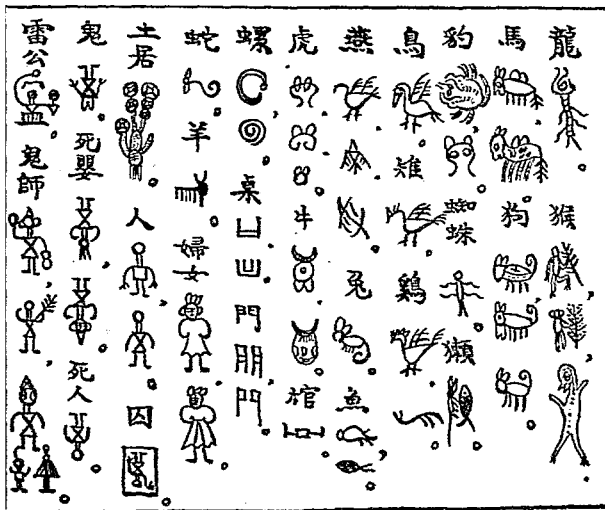 龍 猴
馬 狗
豹 蜘蛛 獺
鳥 雉 鷄
燕 兔 魚
虎 牛 棺
螺 桌 門
蛇 羊 婦女
土居 人 囚
鬼 死嬰 死人
雷公 鬼師